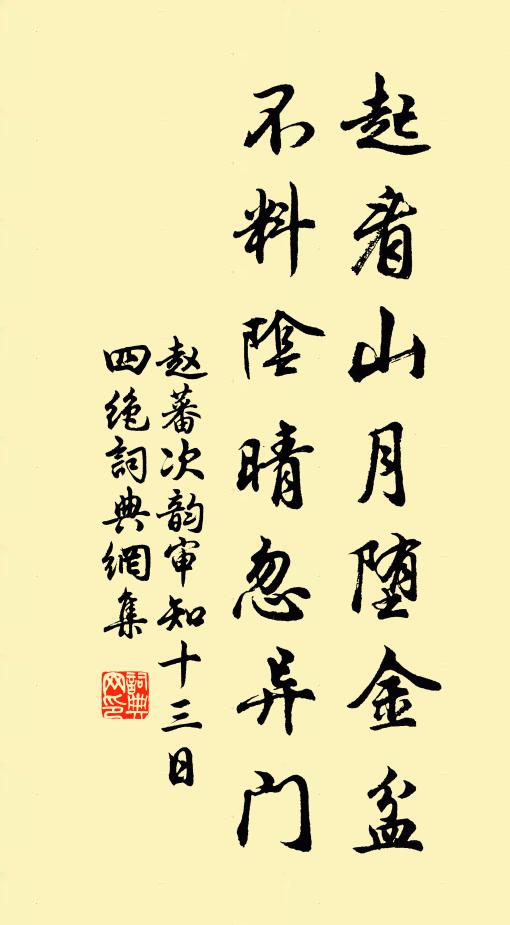 起看山月堕金盆
不料陰晴忽异门
赵蕃次韵审知十三日
四绝詞典網集
詞典网印